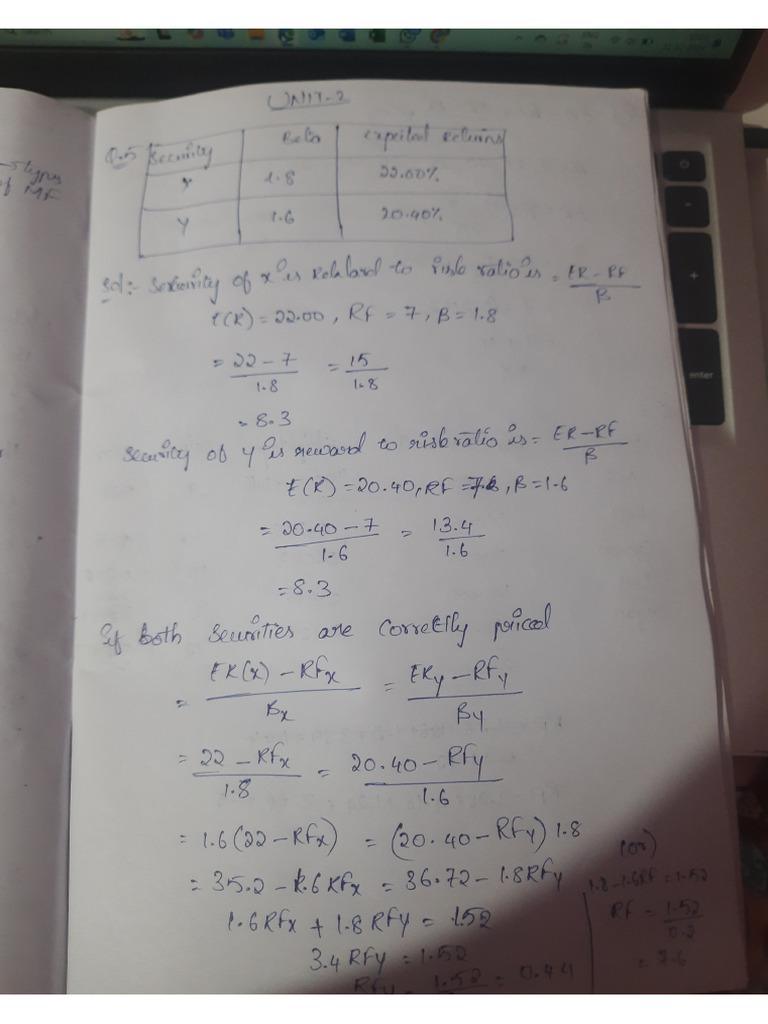 UNIT-2
Q.5 Security Beta Expected Returns
X 1.8 22.00%
Y 1.6 20.40%
Sol:- Security of x is to risk ratio is = ER - RF / β
E(R) = 22.00, RF = 7, β = 1.8
= 22 - 7 / 1.8 = 15 / 1.8
= 8.3
Security of y is reward to risk ratio is = ER - RF / β
E(R) = 20.40, RF = , β = 1.6
= 20.40 - 7 / 1.6 = 13.4 / 1.6
= 8.3
If both securities are correctly priced
= ER(x) - RFx / Bx = ERy - RFy / By
= 22 - RFx / 1.8 = 20.40 - RFy / 1.6
= 1.6(22 - RFx) = (20.40 - RFy) 1.8
= 35.2 - 1.6 RFx = 36.72 - 1.8 RFy
1.6 RFx + 1.8 RFy = 1.52
3.4 RFy = 1.52
RFy = 1.52 = 0.44
(or)
1.8 - 1.6 RF = 1.52
RF = 1.52 / 0.2
= 7.6
types
of MF
enter